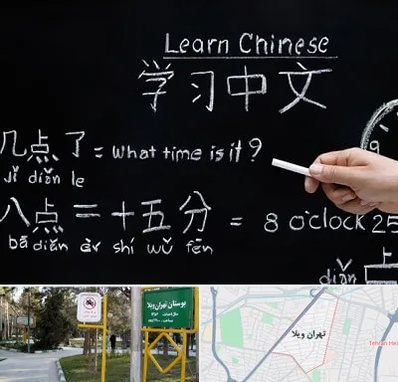 Learn Chinese
学习中文
几点了 = What time is it?
jǐ diǎn le
八点二十五分 = 8 o'clock 25
bā diǎn èr shí wǔ fēn
diǎn
上
9
بوستان تهران ویلا
تهران ویلا
Tehran Hea